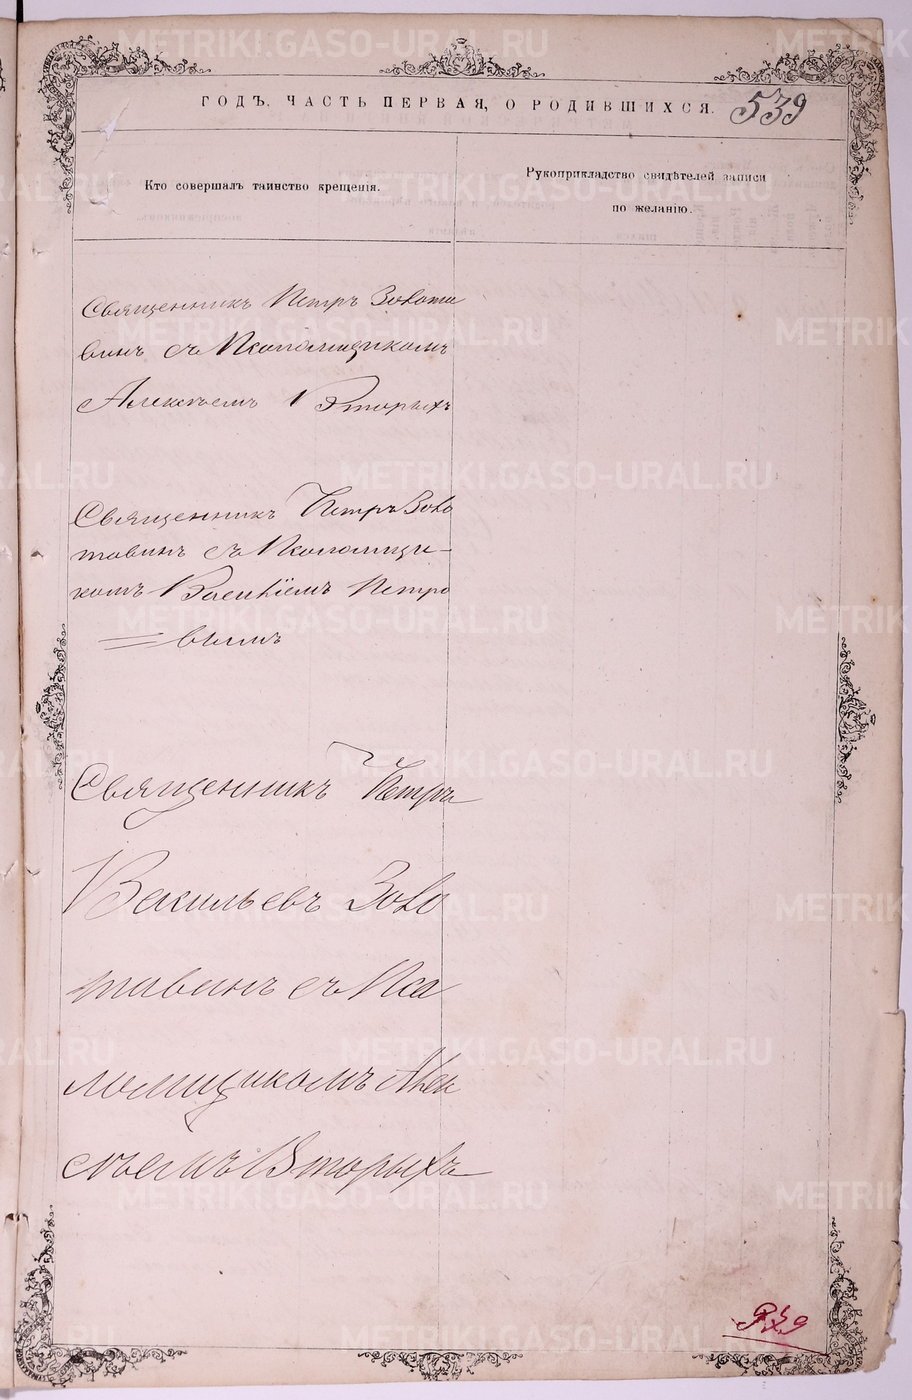 ГОДЪ. ЧАСТЬ ПЕРВАЯ, О РОДИВШИХСЯ. 539
Кто совершалъ таинство крещенія.
Рукоприкладство свидѣтелей записи
по желанію.
Священникъ Петръ Золота
винъ съ Псаломщикомъ
Алексѣемъ Вторыхъ
Священникъ Петръ Золо
тавинъ съ Псаломщи-
комъ Василіемъ Петро
=вымъ
Священникъ Петръ
Васильевъ Золо
тавинъ съ Пса
ломщикомъ Алек
сѣемъ Вторыхъ
METRIKI.GASO-URAL.RU